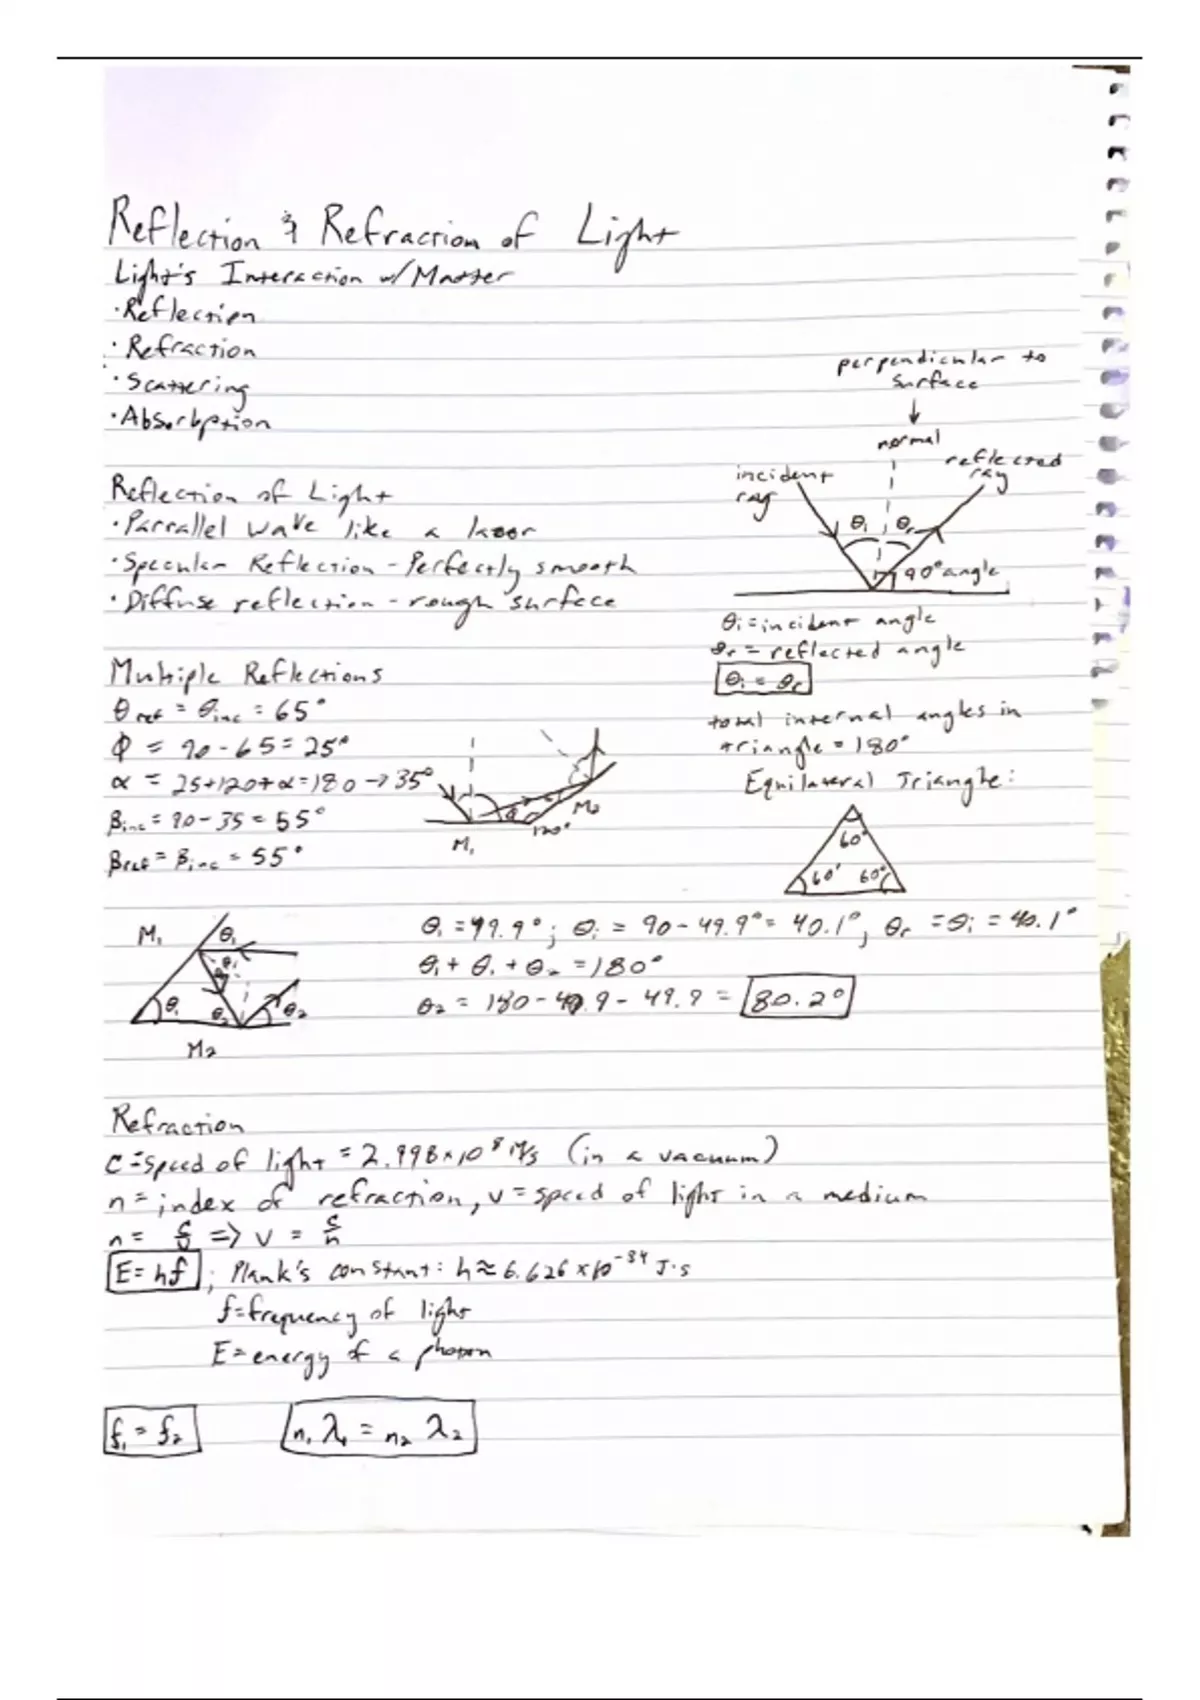 Reflection & Refraction of Light
Light's Interaction w/ Matter
·Reflection
·Refraction
·Scattering
·Absorbption
perpendicular to
surface
normal
incident
ray
reflected
ray
θi θr
90° angle
Reflection of Light
·Parrallel wave like a laser
·Specular Reflection - Perfectly smooth
·Diffuse reflection - rough surface
θi = incident angle
θr = reflected angle
θi = θr
total internal angles in
triangle = 180°
Equilateral Triangle:
60°
60° 60°
Multiple Reflections
θref = θinc = 65°
Φ = 90 - 65 = 25°
α = 25+120+α=180 → 35°
βinc = 90 - 35 = 55°
βref = βinc = 55°
M1
120°
M2
M1 θ1
θ1 θ2 θ2
M2
θ1 = 49.9°; θi = 90 - 49.9° = 40.1°, θr = θi = 40.1°
θ1 + θ1 + θ2 = 180°
θ2 = 180 - 49.9 - 49.9 = 80.2°
Refraction
C = speed of light = 2.998×10⁸ m/s (in a vacuum)
n = index of refraction, v = speed of light in a medium
n = c/v => v = c/n
E = hf ; Plank's constant: h ≈ 6.626 × 10⁻³⁴ J·s
f = frequency of light
E = energy of a photon
f1 = f2 n1 λ1 = n2 λ2